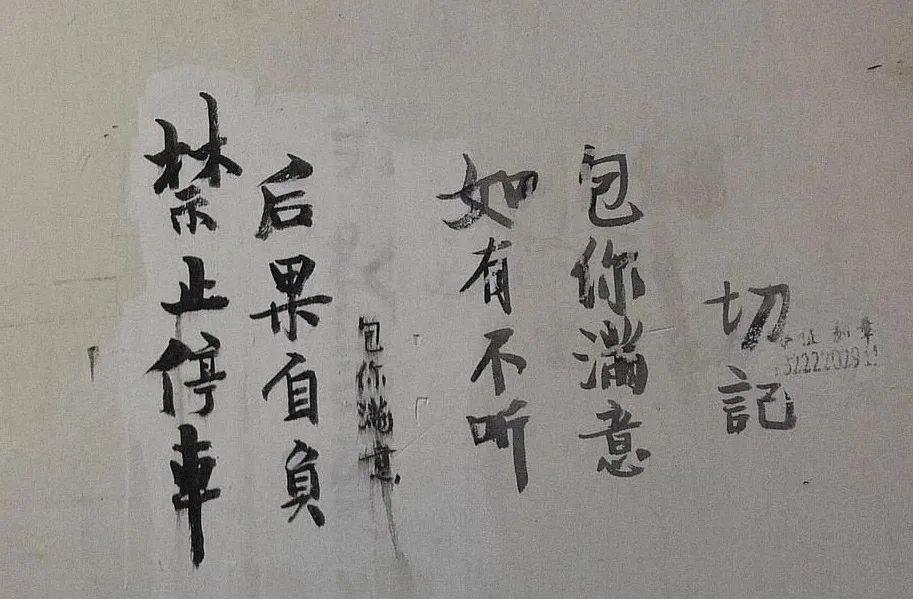 禁止停車
后果自負
包你滿意
如有不听
包你滿意
切記
证刻章